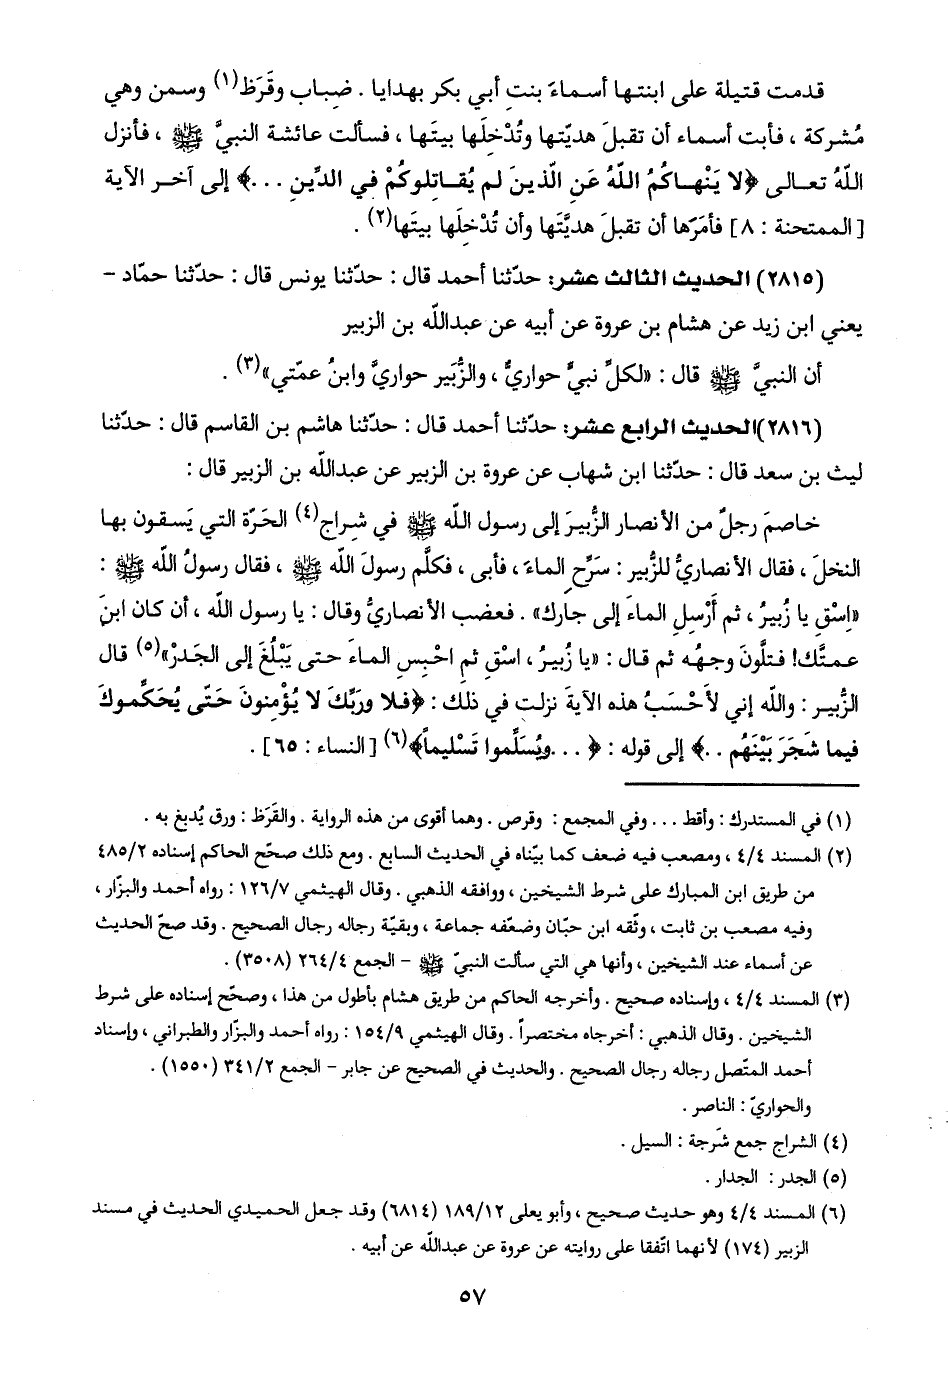 قدمت قتيلة على ابنتها أسماءَ بنتِ أبي بكر بهدايا . ضِباب وقَرَظ(١) وسمن وهي
مُشركة ، فأبت أسماء أن تقبلَ هديّتها وتُدْخلَها بيتَها ، فسألت عائشة النبيَّ ﷺ ، فأنزل
اللهُ تعالى ﴿لا يَنْهاكُمُ اللهُ عَنِ الّذينَ لم يُقاتِلوكُمْ في الدِّينِ ...﴾ إلى آخر الآية
[الممتحنة : ٨] فأمَرَها أن تقبلَ هديَّتَها وأن تُدْخلَها بيتَها(٢) .
(٢٨١٥) الحديث الثالث عشر: حدّثنا أحمد قال : حدّثنا يونس قال : حدّثنا حمّاد -
يعني ابن زيد عن هشام بن عروة عن أبيه عن عبدالله بن الزبير
أن النبيَّ ﷺ قال : «لكلِّ نبيٍّ حواريٌّ ، والزُّبَير حواريَّ وابنُ عمّتي»(٣) .
(٢٨١٦)الحديث الرابع عشر: حدّثنا أحمد قال : حدّثنا هاشم بن القاسم قال : حدّثنا
ليث بن سعد قال : حدّثنا ابن شهاب عن عروة بن الزبير عن عبدالله بن الزبير قال :
خاصمَ رجلٌ من الأنصار الزُّبيرَ إلى رسول الله ﷺ في شراج(٤) الحَرّة التي يَسقون بها
النخلَ ، فقال الأنصاريُّ للزُّبير : سَرِّحِ الماءَ ، فأبى ، فكلَّم رسولَ الله ﷺ ، فقال رسولُ الله ﷺ :
«اِسْقِ يا زُبيرُ ، ثم أَرْسِلِ الماءَ إلى جارك» . فغضب الأنصاريُّ وقال : يا رسول الله ، أن كان ابنَ
عمتك! فتلَّونَ وجهُه ثم قال : «يا زُبيرُ ، اسْقِ ثم احْبِسِ الماءَ حتى يَبْلُغَ إلى الجَدرْ»(٥) قال
الزُّبير : والله إني لأَحْسَبُ هذه الآيةَ نزلت في ذلك : ﴿فلا ورَبِّكَ لا يُؤْمِنونَ حَتّى يُحَكِّموكَ
فيما شَجَرَ بَيْنَهُم ..﴾ إلى قوله : ﴿ ...ويُسَلِّموا تَسْليماً﴾(٦) [النساء : ٦٥] .
(١) في المستدرك : وأقط ... وفي المجمع : وقرص . وهما أقوى من هذه الرواية . والقَرَظ : ورق يُدبغ به .
(٢) المسند ٤/٤ ، ومصعب فيه ضعف كما بيّناه في الحديث السابع . ومع ذلك صحّح الحاكم إسناده ٤٨٥/٢
من طريق ابن المبارك على شرط الشيخين ، ووافقه الذهبي . وقال الهيثمي ١٢٦/٧ : رواه أحمد والبزّار ،
وفيه مصعب بن ثابت ، وثّقه ابن حبّان وضعّفه جماعة ، وبقيّة رجاله رجال الصحيح . وقد صحّ الحديث
عن أسماء عند الشيخين ، وأنها هي التي سألت النبيّ ﷺ - الجمع ٢٦٤/٤ (٣٥٠٨) .
(٣) المسند ٤/٤ ، وإسناده صحيح . وأخرجه الحاكم من طريق هشام بأطول من هذا ، وصحّح إسناده على شرط
الشيخين . وقال الذهبي : أخرجاه مختصراً . وقال الهيثمي ١٥٤/٩ : رواه أحمد والبزّار والطبراني ، وإسناد
أحمد المتّصل رجاله رجال الصحيح . والحديث في الصحيح عن جابر - الجمع ٣٤١/٢ (١٥٥٠) .
والحواريّ : الناصر .
(٤) الشراج جمع شَرجة : السيل .
(٥) الجدر : الجدار .
(٦) المسند ٤/٤ وهو حديث صحيح ، وأبو يعلى ١٨٩/١٢ (٦٨١٤) وقد جعل الحميدي الحديث في مسند
الزبير (١٧٤) لأنهما اتّفقا على روايته عن عروة عن عبدالله عن أبيه .
٥٧